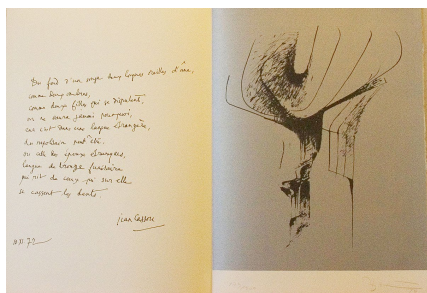 Du fond d'un songe deux longues
comme deux ombres,
comme deux filles qui se disputent,
on ne saura jamais pourquoi,
car c'est dans une langue étrangère,
du napolitain peut-être
ou celle des époux étrusques,
langue de bronze funéraire
qui rit de ceux qui sur elle
se cassent les dents.
Jean Cassou